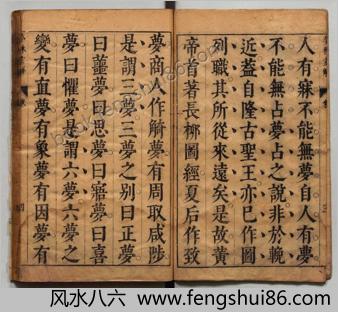 人有寐不能無夢自人有夢
不能無占夢占之說非於輓
近葢自隆古聖王亦已作圖
列職其所從來遠矣是故黃
帝首著長栁圖經夏后作致
夢商人作觭夢有周取咸陟
是謂三夢三夢之别曰正夢
曰蘁夢曰思夢曰寤夢曰喜
夢曰懼夢是謂六夢六夢之
變有直夢有象夢有因夢有
风水八六 www.fengshui86.com